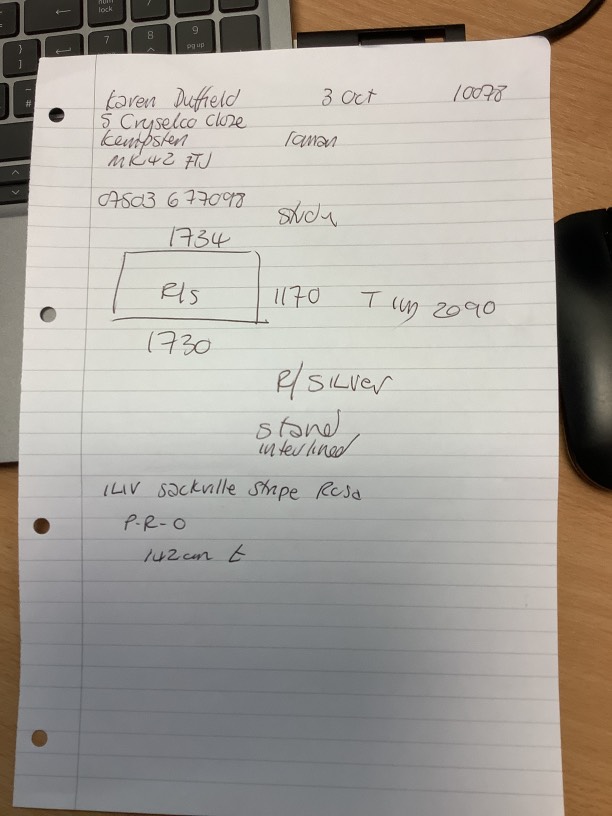 Karen Duffield 3 Oct 10078
5 Cryselco Close
Kempsten Roman
MK42 7TJ
07503 677098
Study
1734
R/s 1170 T 2090
1730
R/SILVER
stand
interlined
ILIV sackville stripe
P-R-O
142cm t